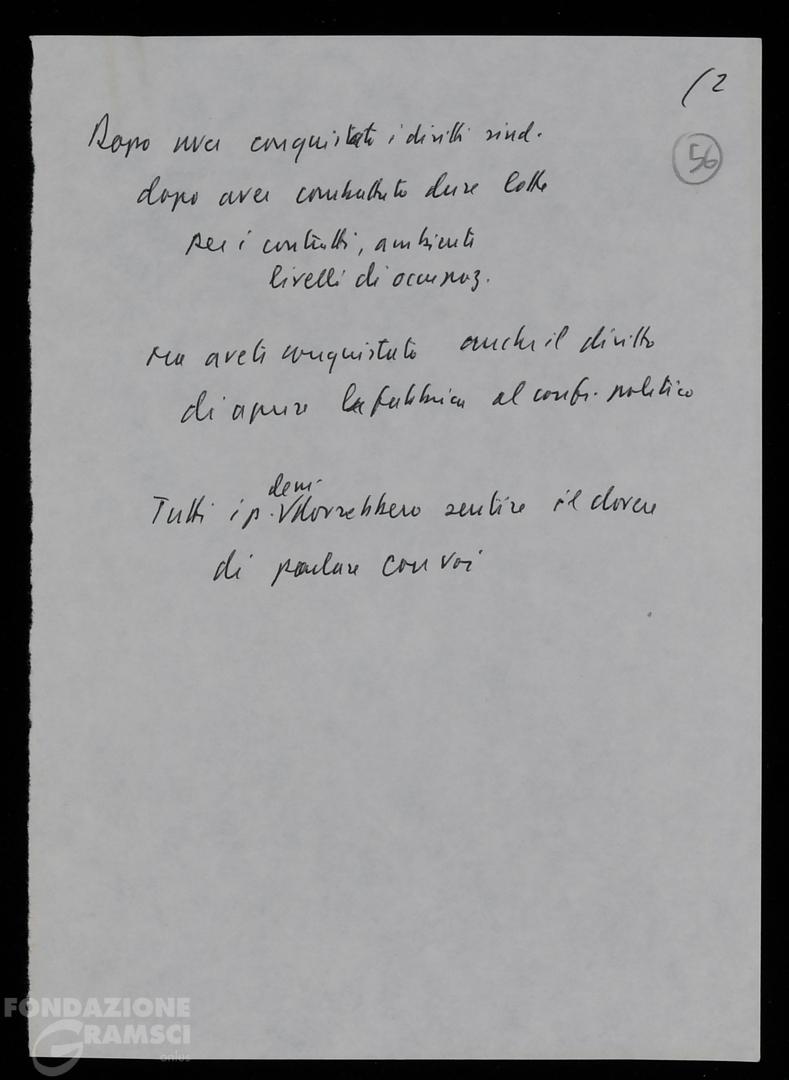 (2
56
Dopo aver conquistato i diritti sind.
dopo aver combattuto dure lotte
per i contratti, ambiente
livelli di occupaz.
ora avete conquistato anche il diritto
di aprire la fabbrica al confr. politico
dem.
Tutti i p. V dovrebbero sentire il dovere
di parlare con voi
FONDAZIONE
GRAMSCI
onlus